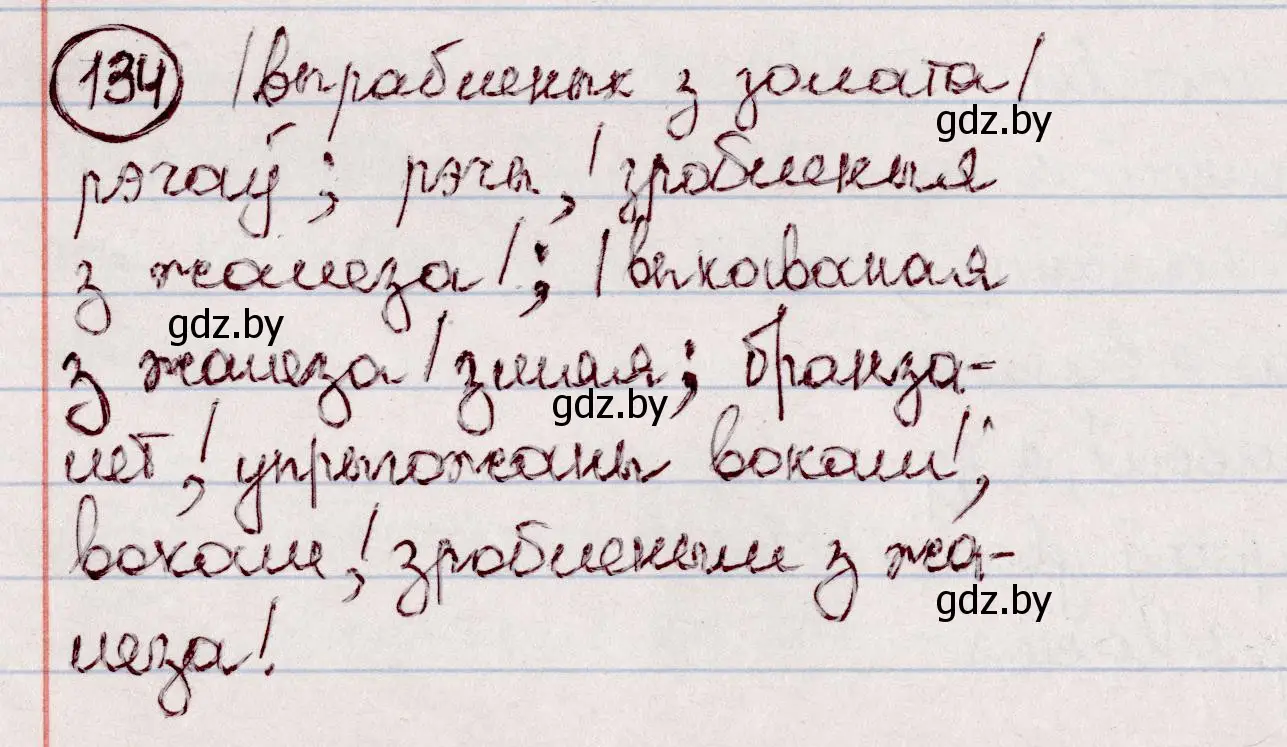 134 /вырабленых з золата/
gdz.by
рэчаў; рэчы, /зробленыя
з жалеза/; /выкаваная
gdz.by
з жалеза/ змяя; бранза-
gdz.by
лет, /упрыгожаны вокам/;
вокам, /зробленым з жа-
gdz.by
леза/.